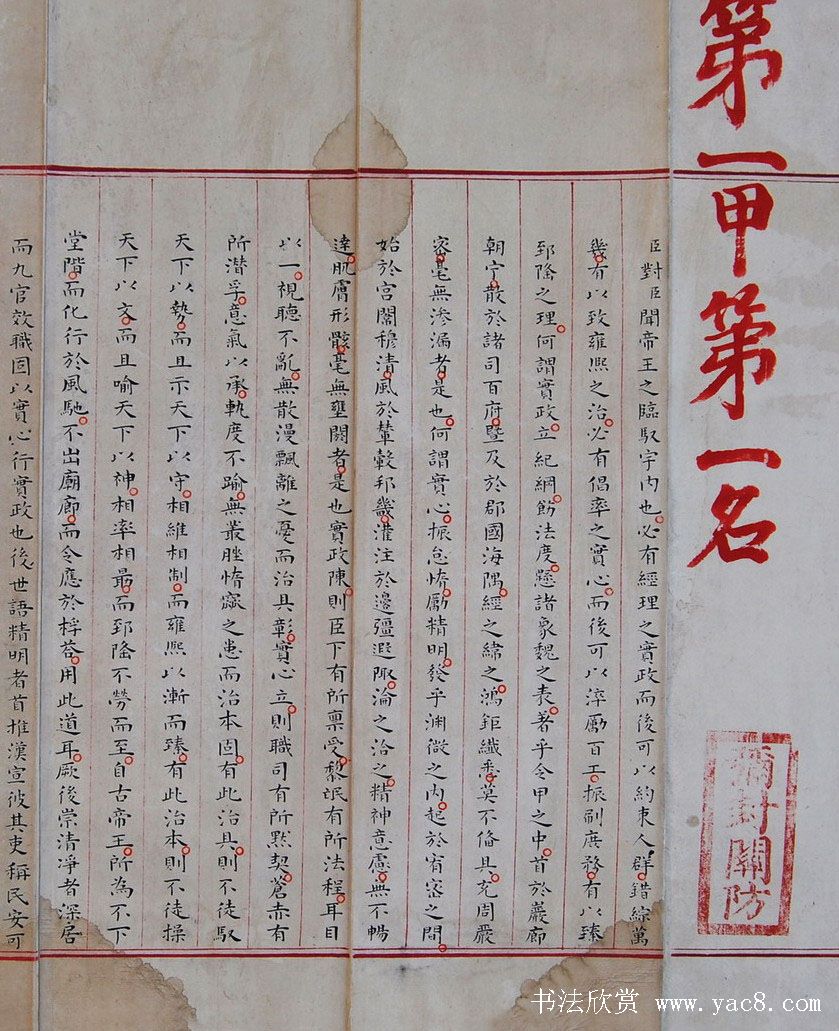 第一甲第一名
彌封關防
臣對臣聞帝王之臨馭宇内也必有經理之實政而後可以約束人群錯綜萬
幾有以致雍熙之治必有倡率之實心而後可以淬勵百工振刷庶務有以臻
郅隆之理何謂實政立紀綱飭法度懸諸象魏之表著乎令甲之中首於巖廊
朝宁散於諸司百府暨及於郡國海隅經之緯之鴻鉅纖悉莫不備具充周嚴
密毫無滲漏者是也何謂實心振怠惰勵精明發乎淵微之内起於宥密之間
始於宮闈穆清風於輦轂邦畿灌注於邊疆遐陬淪之洽之精神意慮無不暢
達肌膚形骸毫無壅閼者是也實政陳則臣下有所稟受黎氓有所法程耳目
以一視聽不亂無散漫飄離之憂而治具彰實心立則職司有所默契蒼赤有
所潛孚意氣以承軌度不踰無叢脞惰窳之患而治本固有此治具則不徒馭
天下以勢而且示天下以守相維相制而雍熙以漸而臻有此治本則不徒操
天下以文而且喻天下以神相率相最而郅隆不勞而至自古帝王所為不下
堂階而化行於風馳不出廟廊而令應於桴荅用此道耳厥後崇清凈者深居
而九官效職固以實心行實政也後世語精明者首推漢宣彼其吏稱民安可
书法欣赏 www.yac8.com